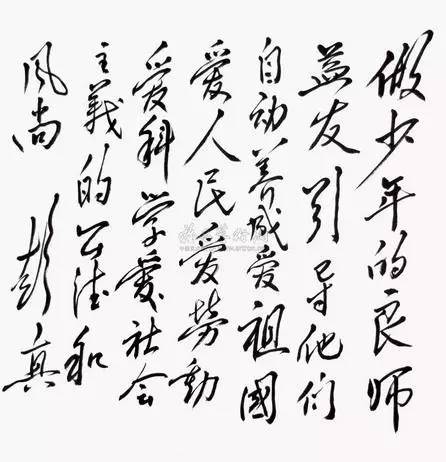 做少年的良师
益友引导他们
自动养成爱祖國
爱人民爱勞動
爱科学爱社会
主義的公德和
風尚 彭真